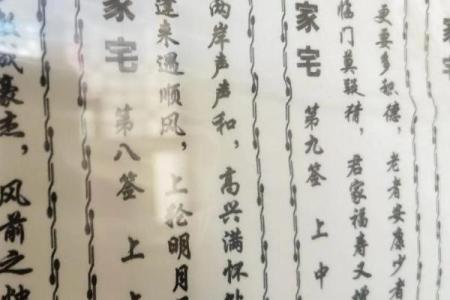 更要多积德，老者安康少者
临门莫疑猜，君家福寿又增
家宅 第九签 上中
两岸声声和，高兴满怀
来遇顺风，上抢明月
家宅 第八签 上
成豪杰，风前之烛